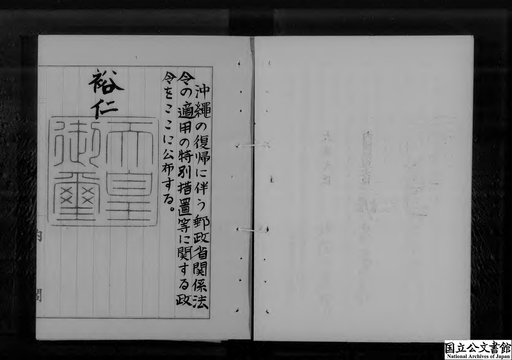 沖縄の復帰に伴う郵政省関係法
令の適用の特別措置等に関する政
令をここに公布する。
裕仁
天皇
御璽
内
閣
国立公文書館
National Archives of Japan